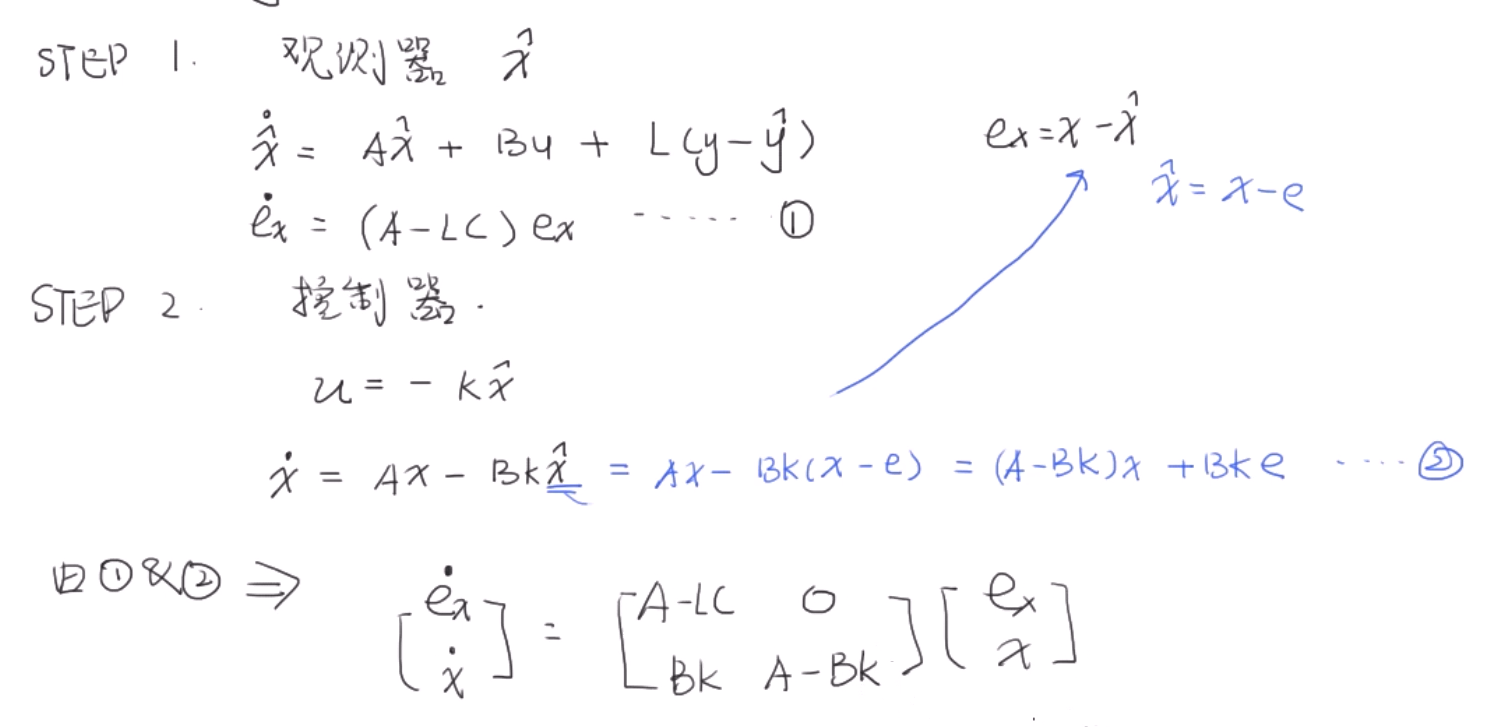 STEP 1. 观测器 x̂
ẋ̂ = Ax̂ + Bu + L(y-ŷ)
eₓ = x - x̂
x̂ = x - e
ėₓ = (A-LC) eₓ ····· ①
STEP 2. 控制器.
u = - kx̂
ẋ = Ax - Bkx̂ = Ax - Bk(x - e) = (A-Bk)x + Bke ····· ②
由①&②⇒
[ėₓ ẋ] = [A-LC 0 Bk A-Bk] [eₓ x]